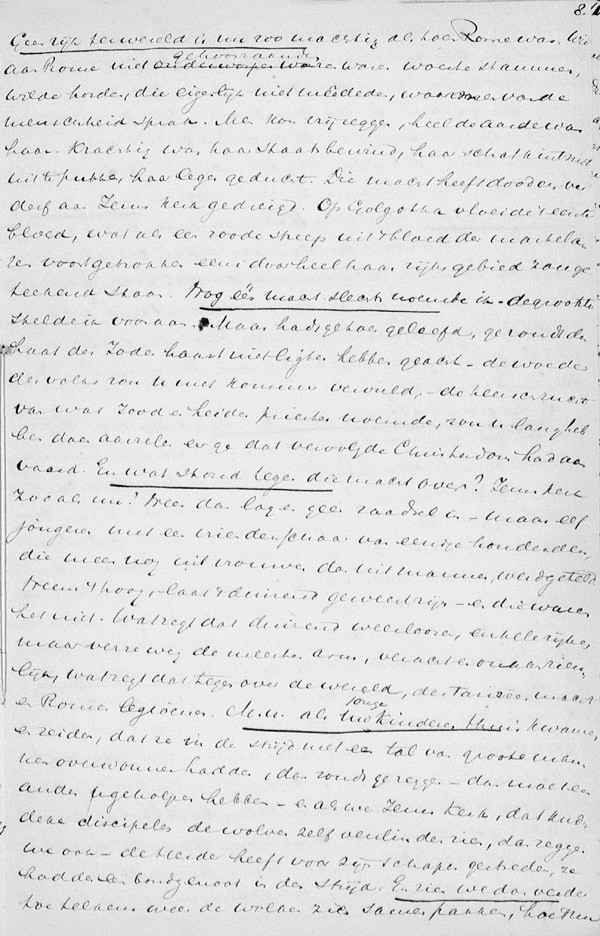 8.
Geen rijk ter wereld is nu zoo machtig als toen Rome was. Wie
aan Rome niet gehoorzaamde waren woeste stammen,
wilde horden, die eigenlijk niet meededen, waar men van de
menschheid sprak. Men kon vrij zeggen, heel de aarde was
haar. Krachtig was haar staatsbewind, haar schatkist niet
uit te putten, haar leger geducht. Die macht heeft dood en ver
derf aan Jezus Kerk gedreigd. Op Golgotha vloeide 't eerste
bloed, wat als een roode streep uit 't bloed der martela
ren voortgetrokken eens door heel haar rijksgebied zou ge
teekend staan. Nog één macht slechts noemde ik - de grootste
stelde ik vooraan. Maar hadt ge toen geleefd, ge zoudt den
haat der Joden haast niet lichter hebben geacht - de woede
des volks zou u met kommer vervuld, - de
van wat Jood en heiden priester noemde, zou u lang heb
ben doen aarzelen eer ge dat vervolgde Christendom had aan
vaard. En wat stond tegen die macht over? Jezus Kerk
zooals nu? Neen dan lag er geen raadsel in - maar elf
jongeren met een vriendenschaar van eenige honderden,
die meer nog uit vrouwen dan uit mannen, werd geteld
Neem 't hoog, laat 't duizend geweest zijn - en die waren
het niet. Wat zegt dat duizend weerloozen, enkele rijken
maar verre weg de meesten arm, veracht en onaanzien-
lijk, wat zegt dat tegen over de wereld, der tanzen macht
en Romes legioenen. M.v. als jonge kinderen thuis kwamen
en zeiden, dat ze in de strijd met een tal van groote man
nen overwonnen hadden, dan zoudt ge zeggen - dan moet een
ander u geholpen hebben - en als we Jezus Kerk, dat kud-
deke discipelen de wolven zelf verslinden zien, dan zeggen
we ook - de Herder heeft voor zijn schapen gestreden, ze
hadden een bondgenoot in den strijd. En zien we dan verder
hoe telkens weer de wolven zich samen pakken, hoe Nero